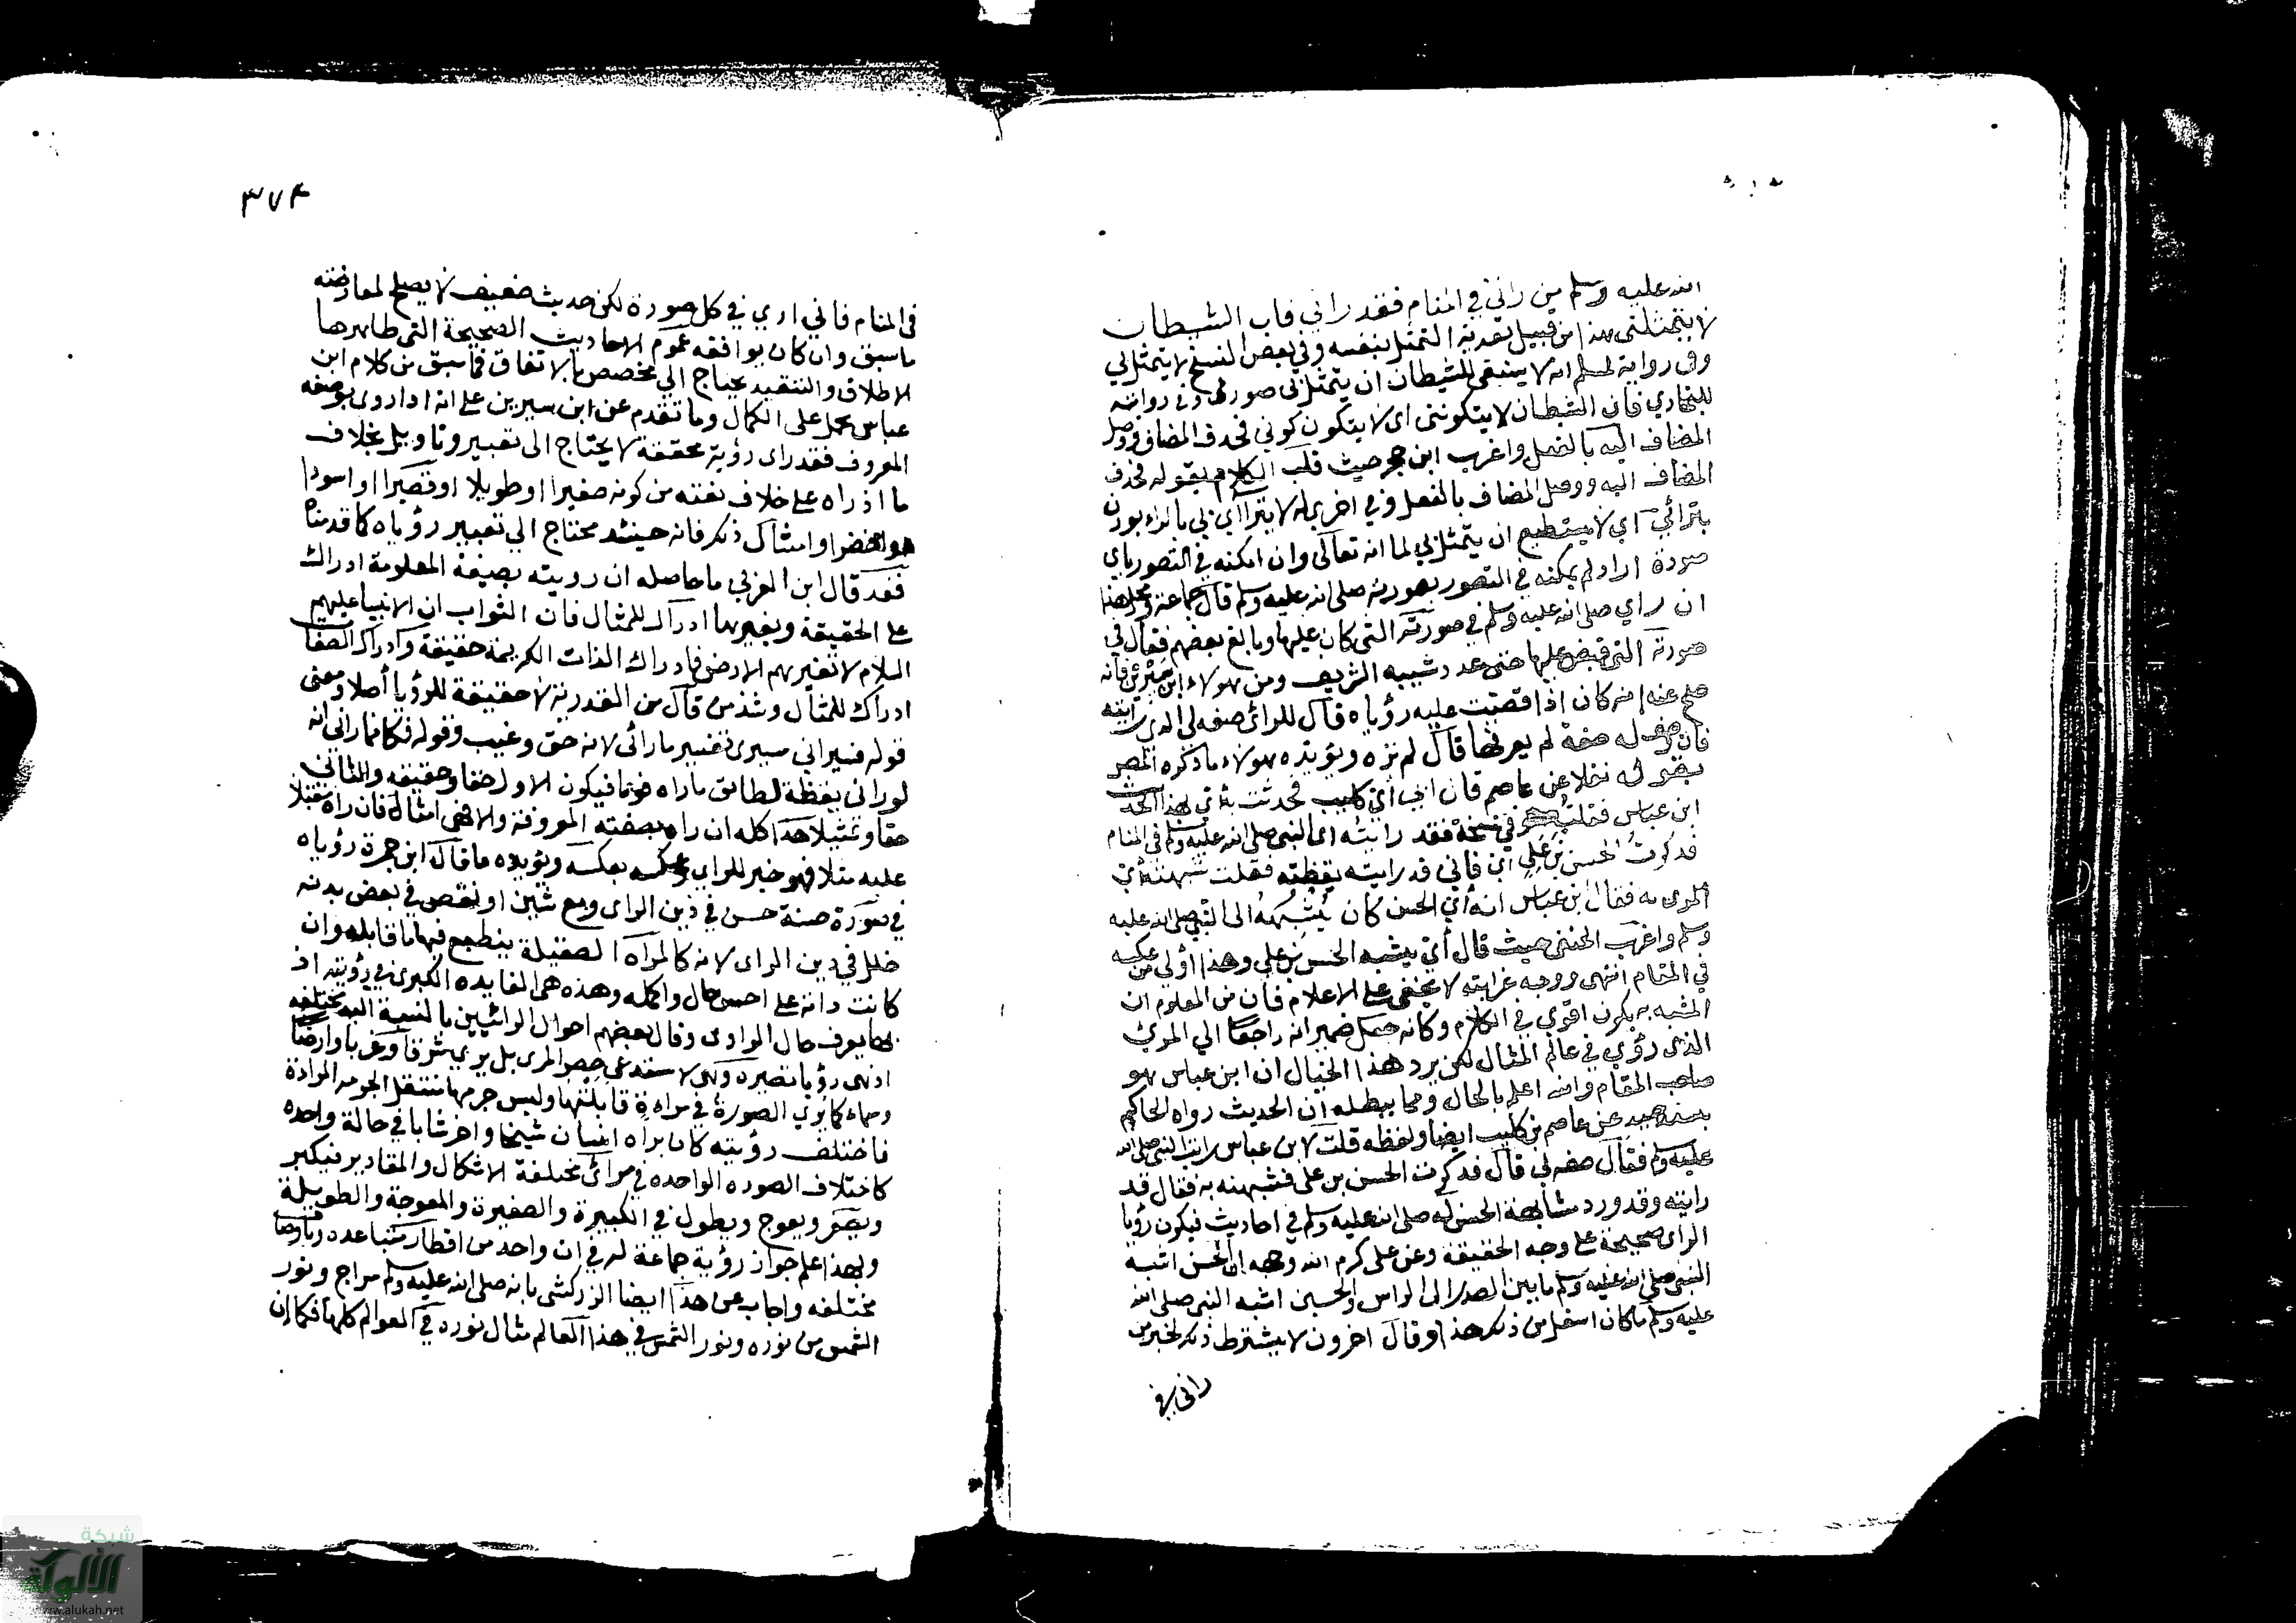 الله عليه وسلم من رآني في المنام فقد رآني فان الشيطان
لا يتمثلني هذا من قبيل تعدية التمثل بنفسه وفي بعض النسخ لا يتمثل بي
وفى رواية لمسلم انه لا ينبغي للشيطان ان يتمثل في صورتي وفي رواية
للبخاري فان الشيطان لا يتكونني اى لا يتكون كوني فحذف المضاف ووصل
المضاف اليه بالفعل واغرب ابن حجر حيث قلب الكلام بقوله فحذف
المضاف اليه ووصل المضاف بالفعل وفي اخرى له لا يتراأى بي بالراء بوزن
يترائي اي لا يستطيع ان يتمثل بي لما انه تعالى وان امكنه في التصور باي
صورة اراد لم يمكنه في التصور بصورته صلى الله عليه وسلم قال جماعة ومحل هذا
ان راي صلى الله عليه وسلم في صورته التى كان عليها وبالغ بعضهم فقال في
صورته التى قبض عليها حتى عدد شيبه الشريف ومن هولاء ابن سيرين فانه
صح عنه انه كان اذا قصت عليه رؤياه قال للرائى صف لى الذى رايته
فان وصف له صفة لم يعرفها قال لم تره ويؤيده هولاء ما ذكره المصـ
بقوله نقلا عن عاصم قال ابن كليب فحدثت به اى بهذا الحديث
ابن عباس فقلت في نسخة فقد رايته اى النبي صلى الله عليه وسلم في المنام
فذكرت الحسن بن علي اى فاني قد رايته يقظته فقلت شبهته اى
المرى به فقال ابن عباس انه أي الحسن كان يشبهه اى النبي صلى الله عليه
وسلم واغرب الحنفى حيث قال أي يشبه الحسن بن علي وهذا أولى من عكسه
في المقام انتهى ووجه غرابته لا يخفى على الاعلام فان من المعلوم ان
المشبه به يكون اقوى في الكلام وكانه جعل ضمير انه راجعا الي المرئ
الذى رؤي في عالم المثال لكن يرد هذا الخيال ان ابن عباس هو
صاحب المقام والله اعلم بالحال ومما يبطله ان الحديث رواه الحاكم
بسند جيد عن عاصم بن كليب ايضا ولفظه قلت لابن عباس رايت النبي صلى الله
عليه وسلم فقال صفه لي قال فذكرت الحسن بن على فشبهته به فقال قد
رايته وقد ورد مشابهة الحسن له صلى الله عليه وسلم في احاديث فيكون رؤيا
الراى صحيحة على وجه الحقيقة وعن على كرم الله وجهه ان الحسن اشبه
النبي صلى الله عليه وسلم ما بين الصدر الى الراس والحسين اشبه النبي صلى الله
عليه وسلم ما كان اسفل من ذلك هذا وقال اخرون لا يشترط ذلك لخبر من
رانى في
٣٧٤
فى المنام فاني ارى في كل صورة لكن حديث ضعيف لا يصلح لمعارضة
ما سبق وان كان يوافقه عموم الاحاديث الصحيحة التى ظاهرها
الاطلاق والتقييد يحتاج الي مخصص بالاتفاق فما سبق من كلام ابن
عباس يحمل على الكمال وما تقدم عن ابن سيرين على انه اذا روى بوصفه
المعروف فقد راى رؤية محققة لا يحتاج الى تعبير وتاويل بخلاف
ما اذ راه على خلاف نعته من كونه صغيرا اوطويلا او قصيرا او اسودا
او اخضر او امثال ذلك فانه حينئذ محتاج الى تعبير رؤياه كما قدمناه
فقد قال ابن العربي ما حاصله ان رويته بصيغة المعلومة ادراك
على الحقيقة وبغيرها ادراك للمثال فان الثواب ان الانبيا عليهم
السلام لا تغيرهم الارض فادراك الذات الكريمة حقيقة وادراك الصفات
ادراك للمثال وشذ من قال من القدرية لا حقيقة للرؤيا أصلا ومعنى
قوله فسيراني سيرى تفسير ما رائى لانه حق وغيب وقوله فكانما رانى انه
لو رانى يقظة لطابق ما راه نوما فيكون الاول حقا وحقيقه والثاني
حقا وتمثيلا هذا كله ان راه بصفته المعروفة والا فهى امثال فان راه مقبلا
عليه مثلا فهو خير للراي وعكسه بعكسه ويؤيده ما قال ابن جمرة رؤياه
في صورة حسنة حسن في دين الراى ومع شين او نقص في بعض بدنه
خلل في دين الراى لانه كالمرآة الصقيلة ينطبع فيها ما قابلها وان
كانت ذاته على احسن حال واكمله وهذه هى الفايده الكبرى في رؤيته اذ
بها يعرف حال الراوى وقال بعضهم احوال الرائيين بالنسبة اليه مختلفه
اذ هى رؤيا بصيرة وهى لا ستدعى حصر المرى بل يرى شرقا وغربا وارضا
وسماء كما يري الصورة في مراءة قابلتها وليس جرمها منتقل لجرم المراءة
فاختلف رؤيته كان يراه انسان شيخا واخر شابا في حالة واحده
كاختلاف الصوره الواحده في مرائي مختلفة الاشكال والمقادير فيكبر
ويصغر ويعوج ويطول في الكبيرة والصغيرة والمعوجة والطويلة
وبهذا علم جواز رؤية جماعة له في ان واحد من اقطار متباعده وباوصاف
مختلفه واجاب عن هذا ايضا الزركشى بانه صلى الله عليه وسلم سراج ونور
الشمس من نوره ونور الشمس في هذا العالم مثال نوره في العوالم كلها فكما ان
شبكة
الألوكة
www.alukah.net